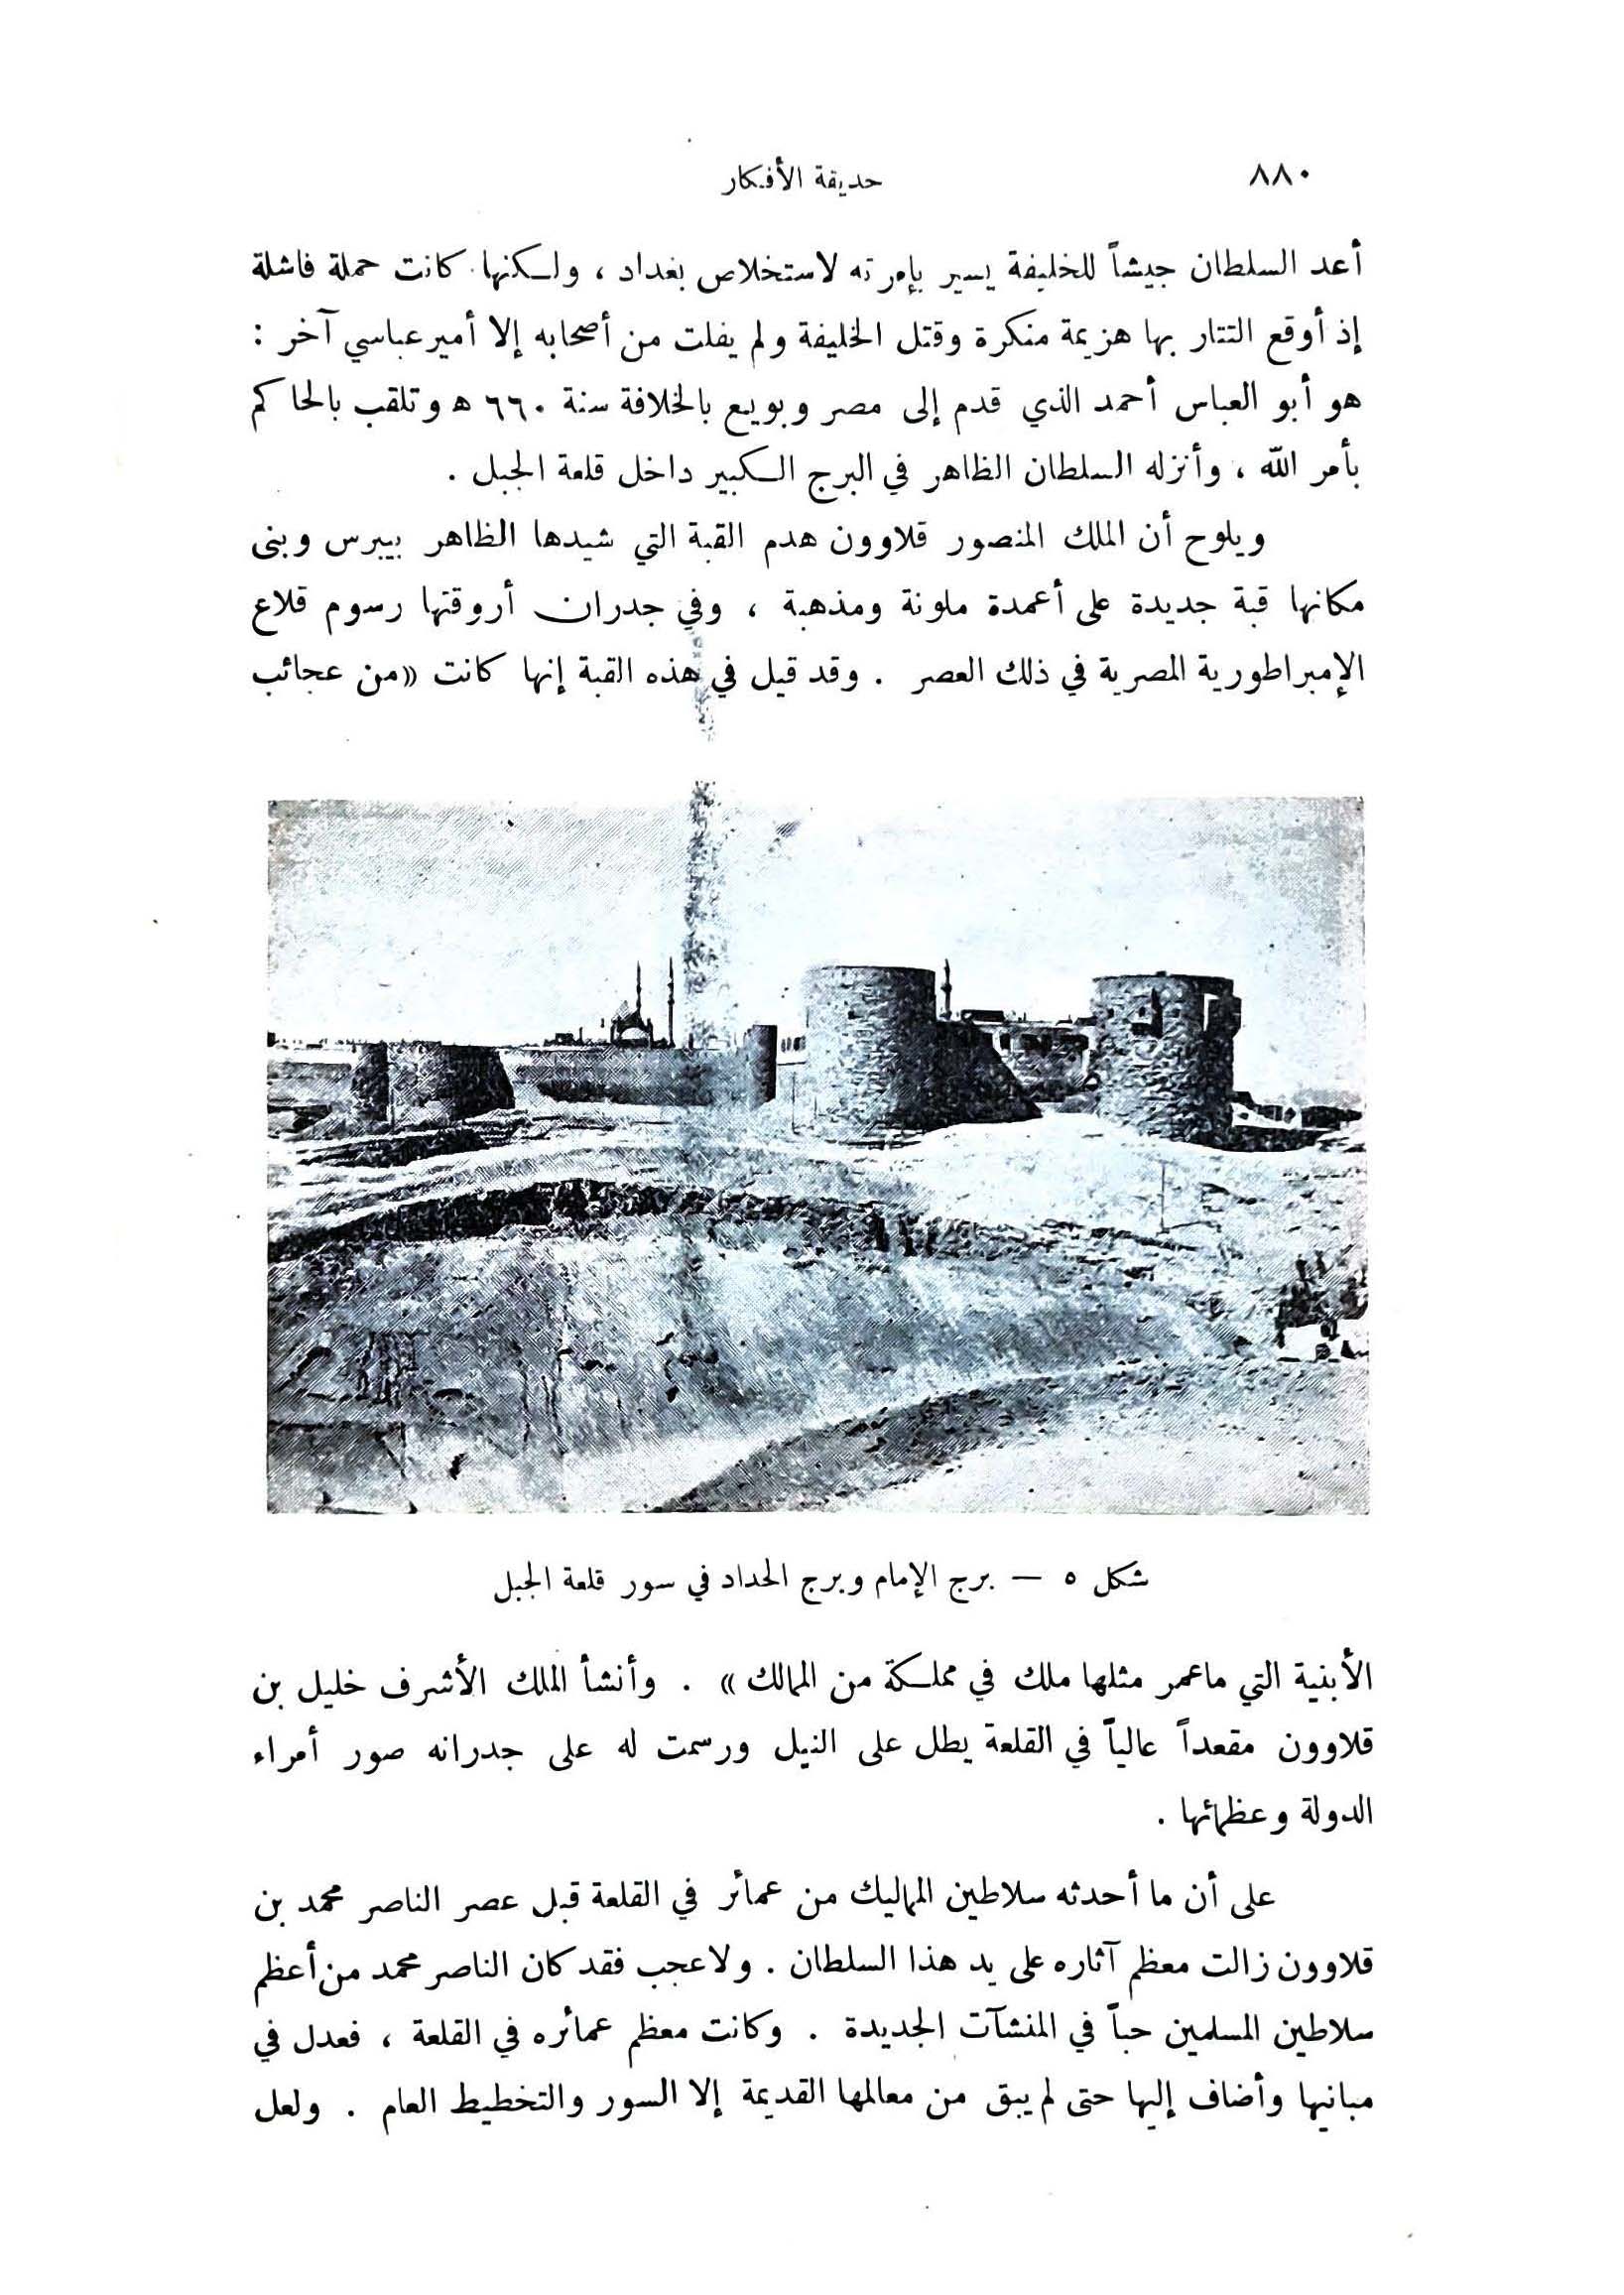 ٨٨٠
حديقة الأفكار
أعد السلطان جيشاً للخليفة يسير بإمرته لاستخلاص بغداد ، ولكنها كانت حملة فاشلة
إذ أوقع التتار بها هزيمة منكرة وقتل الخليفة ولم يفلت من أصحابه إلا أمير عباسي آخر :
هو أبو العباس أحمد الذي قدم إلى مصر وبويع بالخلافة سنة ٦٦٠ ه وتلقب بالحاكم
بأمر الله ، وأنزله السلطان الظاهر في البرج الكبير داخل قلعة الجبل .
ويلوح أن الملك المنصور قلاوون هدم القبة التي شيدها الظاهر بيبرس وبنى
مكانها قبة جديدة على أعمدة ملونة ومذهبة ، وفي جدران أروقتها رسوم قلاع
الإمبراطورية المصرية في ذلك العصر . وقد قيل في هذه القبة إنها كانت «من عجائب
شكل ٥ — برج الإمام وبرج الحداد في سور قلعة الجبل
الأبنية التي ماعمر مثلها ملك في مملكة من الممالك» . وأنشأ الملك الأشرف خليل بن
قلاوون مقعداً عالياً في القلعة يطل على النيل ورسمت له على جدرانه صور أمراء
الدولة وعظمائها .
على أن ما أحدثه سلاطين المماليك من عمائر في القلعة قبل عصر الناصر محمد بن
قلاوون زالت معظم آثاره على يد هذا السلطان . ولاعجب فقد كان الناصر محمد من أعظم
سلاطين المسلمين حباً في المنشآت الجديدة . وكانت معظم عمائره في القلعة ، فعدل في
مبانيها وأضاف إليها حتى لم يبق من معالمها القديمة إلا السور والتخطيط العام . ولعل